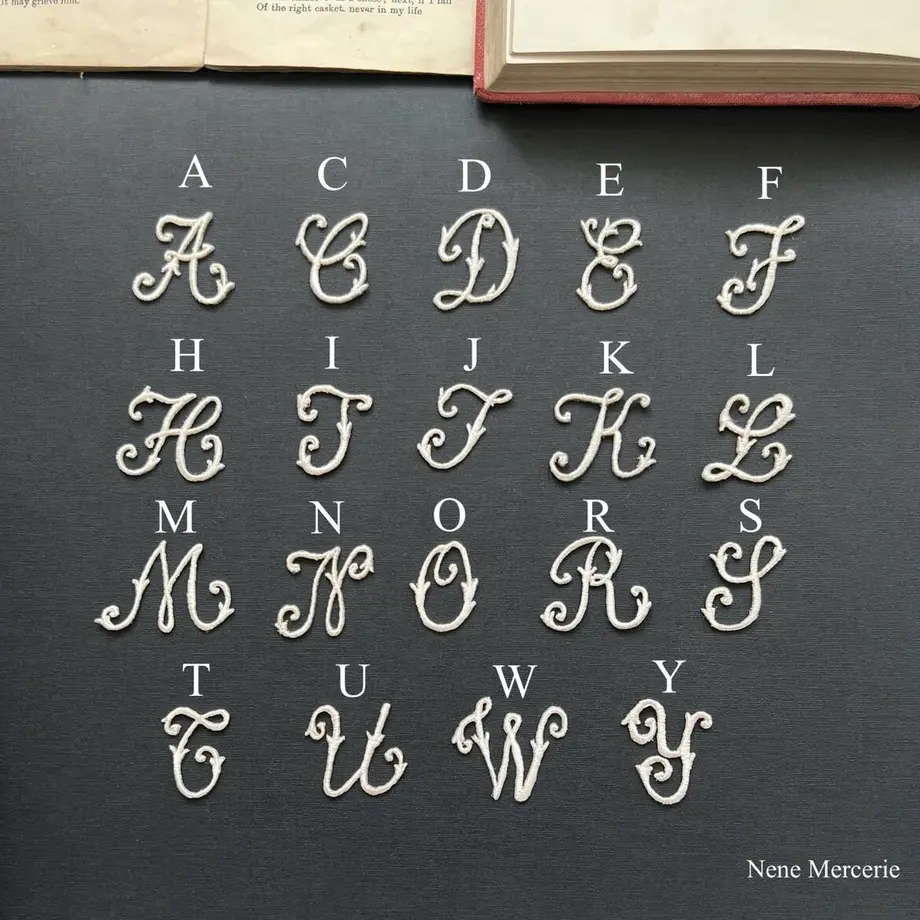 it may grieve him.
Of the right casket, never in my life
A C D E F
A C D E F
H I J K L
H I J K L
M N O R S
M N O R S
T U W Y
T U W Y
Nene Mercerie